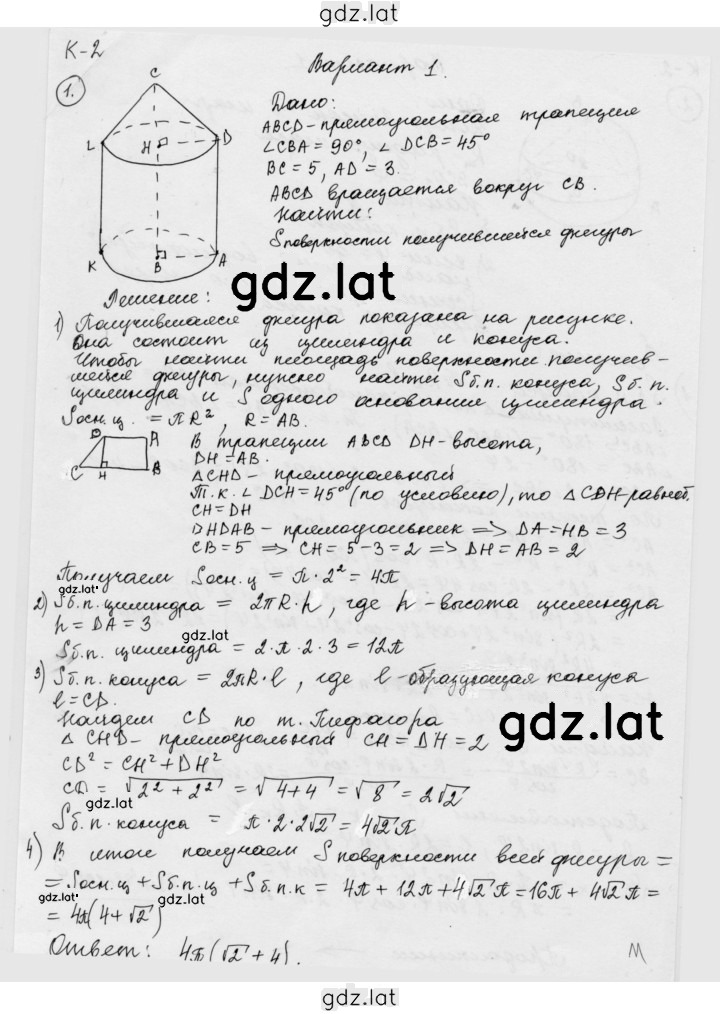 gdz.lat
К-2
Вариант 1.
1.
C
L
H
D
K
B
A
Дано:
ABCD - прямоугольная трапеция
∠CBA = 90°, ∠DCB = 45°
BC = 5, AD = 3.
ABCD вращается вокруг CB.
Найти:
Sповерхности получившейся фигуры
gdz.lat
Решение:
1) Получившаяся фигура показана на рисунке.
Она состоит из цилиндра и конуса.
Чтобы найти площадь поверхности получив-
шейся фигуры, нужно найти Sб.п. конуса, Sб.п.
цилиндра и S одного основания цилиндра.
Sосн.ц. = πR², R = AB.
D A
C H B
В трапеции ABCD DH - высота,
DH = AB.
△CHD - прямоугольный
Т.к. ∠DCH = 45° (по условию), то △CDH - равноб.
CH = DH
DHDAB - прямоугольник => DA = HB = 3
CB = 5 => CH = 5 - 3 = 2 => DH = AB = 2
Получаем Sосн.ц = π · 2² = 4π
gdz.lat
2) Sб.п. цилиндра = 2πR · h, где h - высота цилиндра
h = DA = 3
Sб.п. цилиндра = 2 · π · 2 · 3 = 12π
3) Sб.п. конуса = 2πR · l, где l - образующая конуса
l = CD.
gdz.lat
Найдем CD по т. Пифагора
△CHD - прямоугольный CH = DH = 2
CD² = CH² + DH²
CD = √2² + 2² = √4 + 4 = √8 = 2√2
gdz.lat
Sб.п. конуса = π · 2 · 2√2 = 4√2π
4) В итоге получаем S поверхности всей фигуры =
= Sосн.ц + Sб.п.ц + Sб.п.к = 4π + 12π + 4√2π = 16π + 4√2π =
gdz.lat
gdz.lat
= 4π(4 + √2)
Ответ: 4π(√2 + 4).
М
gdz.lat